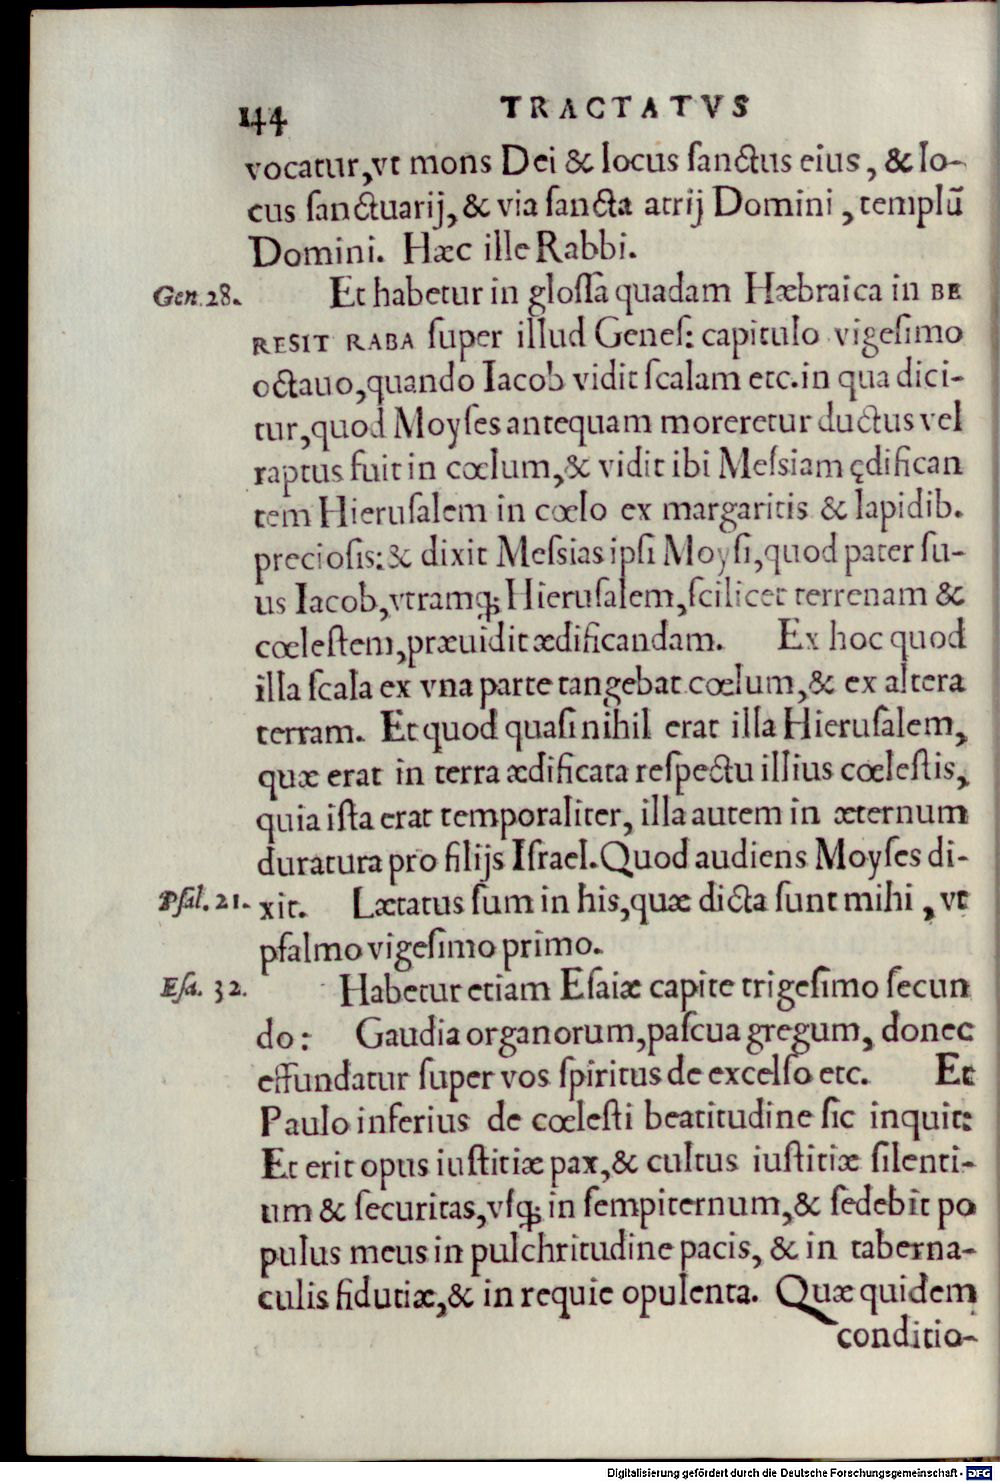 144 TRACTATVS
vocatur,vt mons Dei & locus ſanctus eius, & lo-
cus ſanctuarij, & via ſancta atrij Domini, templũ
Domini. Hæc ille Rabbi.
Gen. 28. Et habetur in gloſſa quadam Hæbraica in BE
RESIT RABA ſuper illud Geneſ: capitulo vigeſimo
octauo,quando Iacob vidit ſcalam etc.in qua dici-
tur,quod Moyſes antequam moreretur ductus vel
raptus fuit in cœlum,& vidit ibi Meſsiam ędifican
tem Hieruſalem in cœlo ex margaritis & lapidib.
precioſis:& dixit Meſsias ipſi Moyſi,quod pater ſu-
us Iacob,vtramq; Hieruſalem,ſcilicet terrenam &
cœleſtem,præuidit ædificandam. Ex hoc quod
illa ſcala ex vna parte tangebat cœlum,& ex altera
terram. Et quod quaſi nihil erat illa Hieruſalem,
quæ erat in terra ædificata reſpectu illius cœleſtis,
quia iſta erat temporaliter, illa autem in æternum
duratura pro filijs Iſrael.Quod audiens Moyſes di-
Pſal. 21. xit. Lætatus ſum in his,quæ dicta ſunt mihi, vt
pſalmo vigeſimo primo.
Eſa. 32. Habetur etiam Eſaiæ capite trigeſimo ſecun
do: Gaudia organorum,paſcua gregum, donec
effundatur ſuper vos ſpiritus de excelſo etc. Et
Paulo inferius de cœleſti beatitudine ſic inquit:
Et erit opus iuſtitiæ pax,& cultus iuſtitiæ ſilenti-
um & ſecuritas,vſq; in ſempiternum,& ſedebit po
pulus meus in pulchritudine pacis, & in taberna-
culis fidutiæ,& in requie opulenta. Quæ quidem
conditio-
Digitalisierung gefördert durch die Deutsche Forschungsgemeinschaft - DFG